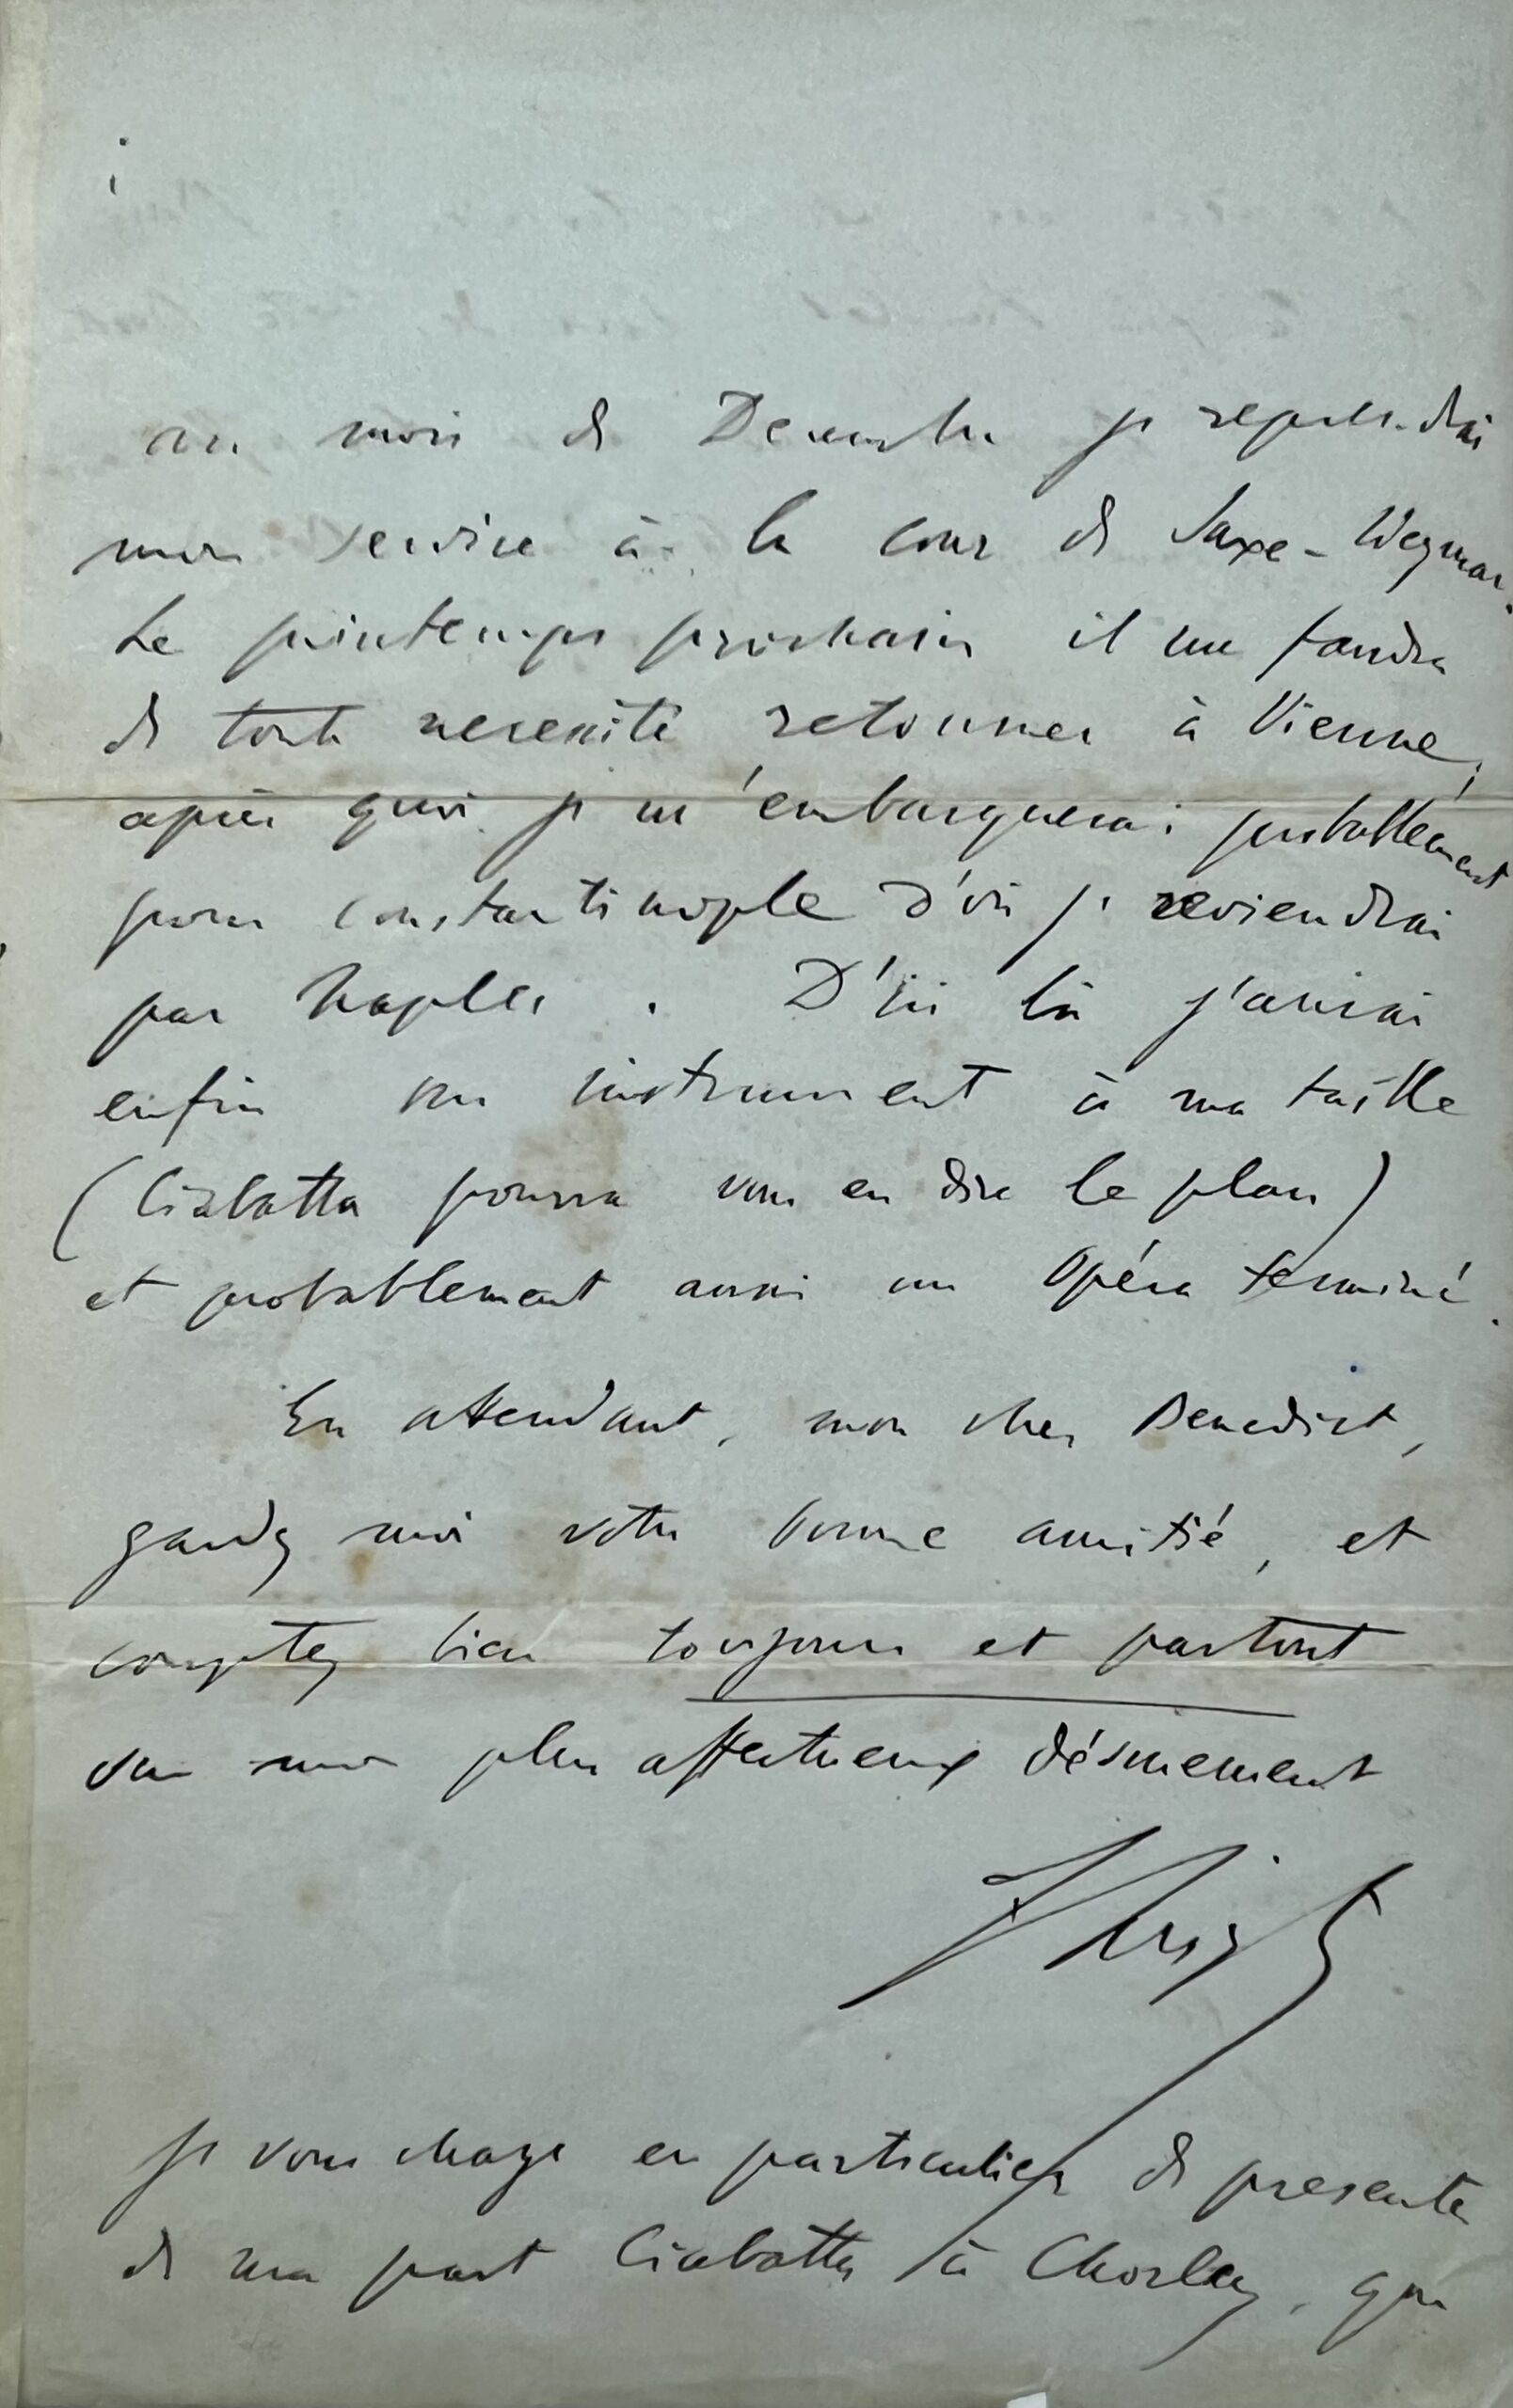 au mois de Decembre je reprendrai
mon service à la cour de Saxe-Weymar.
Le printemps prochain il me faudra
de toute necessité retourner à Vienne,
après quoi je m'embarquerai probablement
pour Constantinople d'où je reviendrai
par Naples. D'ici là j'aurai
enfin un instrument à ma taille
(Ciabatta pourra vous en dire le plan)
et probablement aussi un Opéra terminé.
En attendant, mon cher Benedict,
gardez moi votre bonne amitié, et
comptez bien toujours et partout
sur mon plus affectueux dévouement
F Liszt
Je vous charge en particulier de presenter
de ma part Ciabatta à Chorley, que